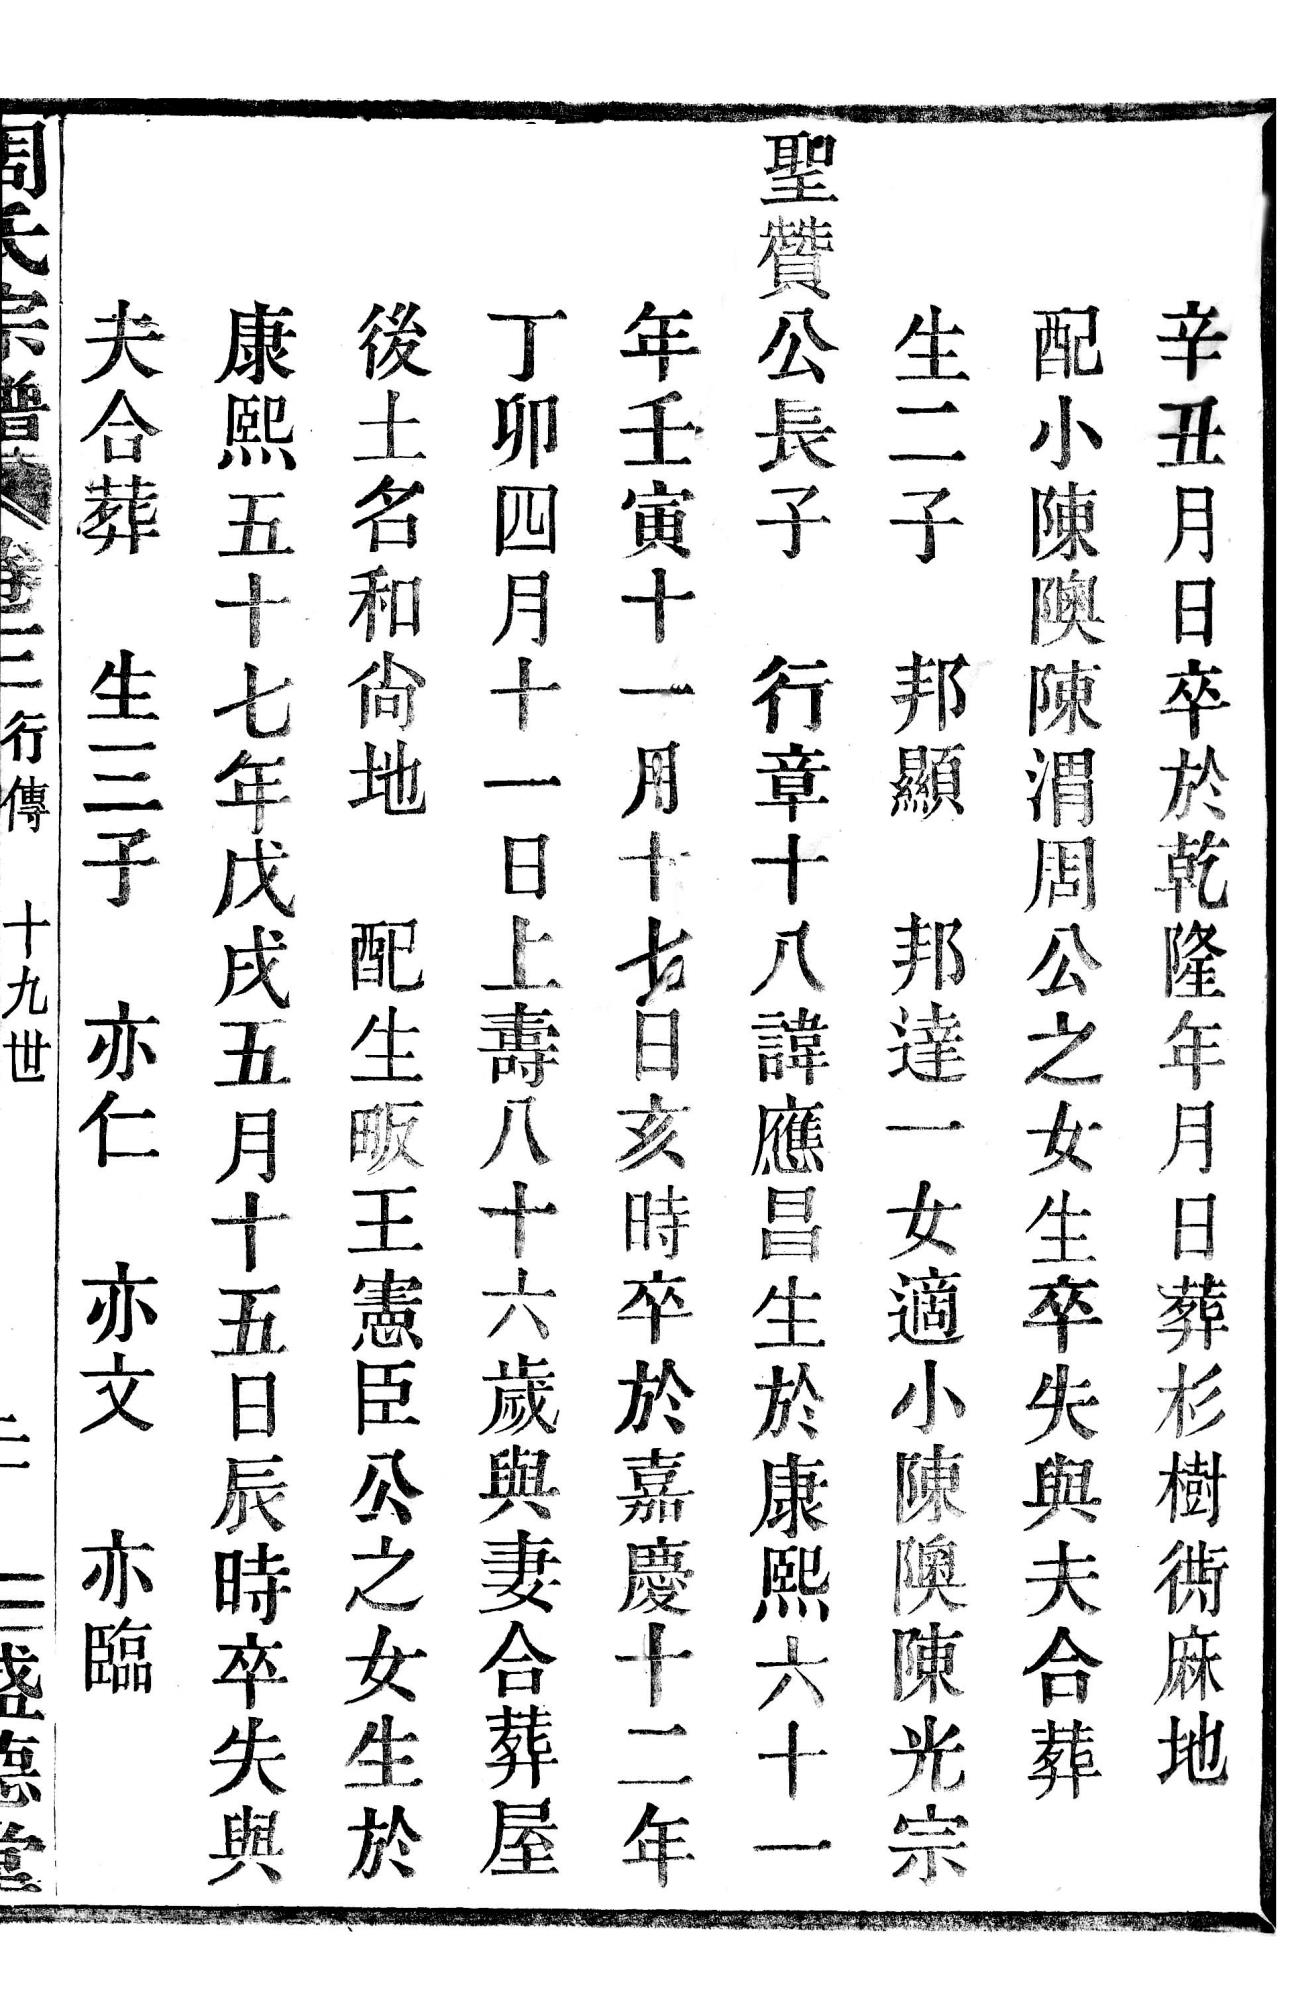 辛丑月日卒於乾隆年月日葬杉樹衖麻地
配小陳隩陳渭周公之女生卒失與夫合葬
生二子　邦顯　邦達一女適小陳隩陳光宗
聖贊公長子　行章十八諱應昌生於康熙六十一
年壬寅十一月十七日亥時卒於嘉慶十二年
丁卯四月十一日上壽八十六歲與妻合葬屋
後土名和尙地　配生畈王憲臣公之女生於
康熙五十七年戊戌五月十五日辰時卒失與
夫合葬　生三子　亦仁　亦文　亦臨
周氏宗譜　卷三　行傳　十九世　盛德堂